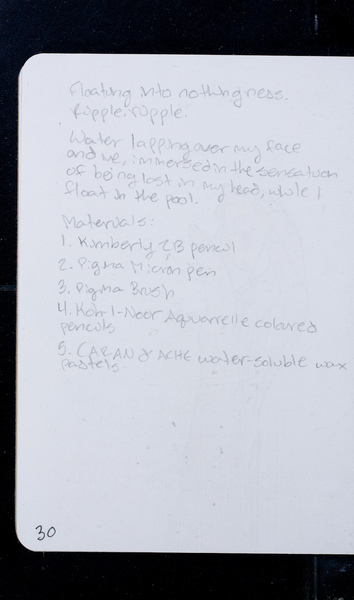 Floating into nothingness.
Ripple, ripple.
Water lapping over my face
and me, immersed in the sensation
of being lost in my head, while I
float in the pool.
Materials:
1. Kimberly 2B pencil
2. Pigma Micron pen
3. Pigma Brush
4. Koh-I-Noor Aquarelle colored
pencils
5. CARAN d'ACHE water-soluble wax
pastels
30